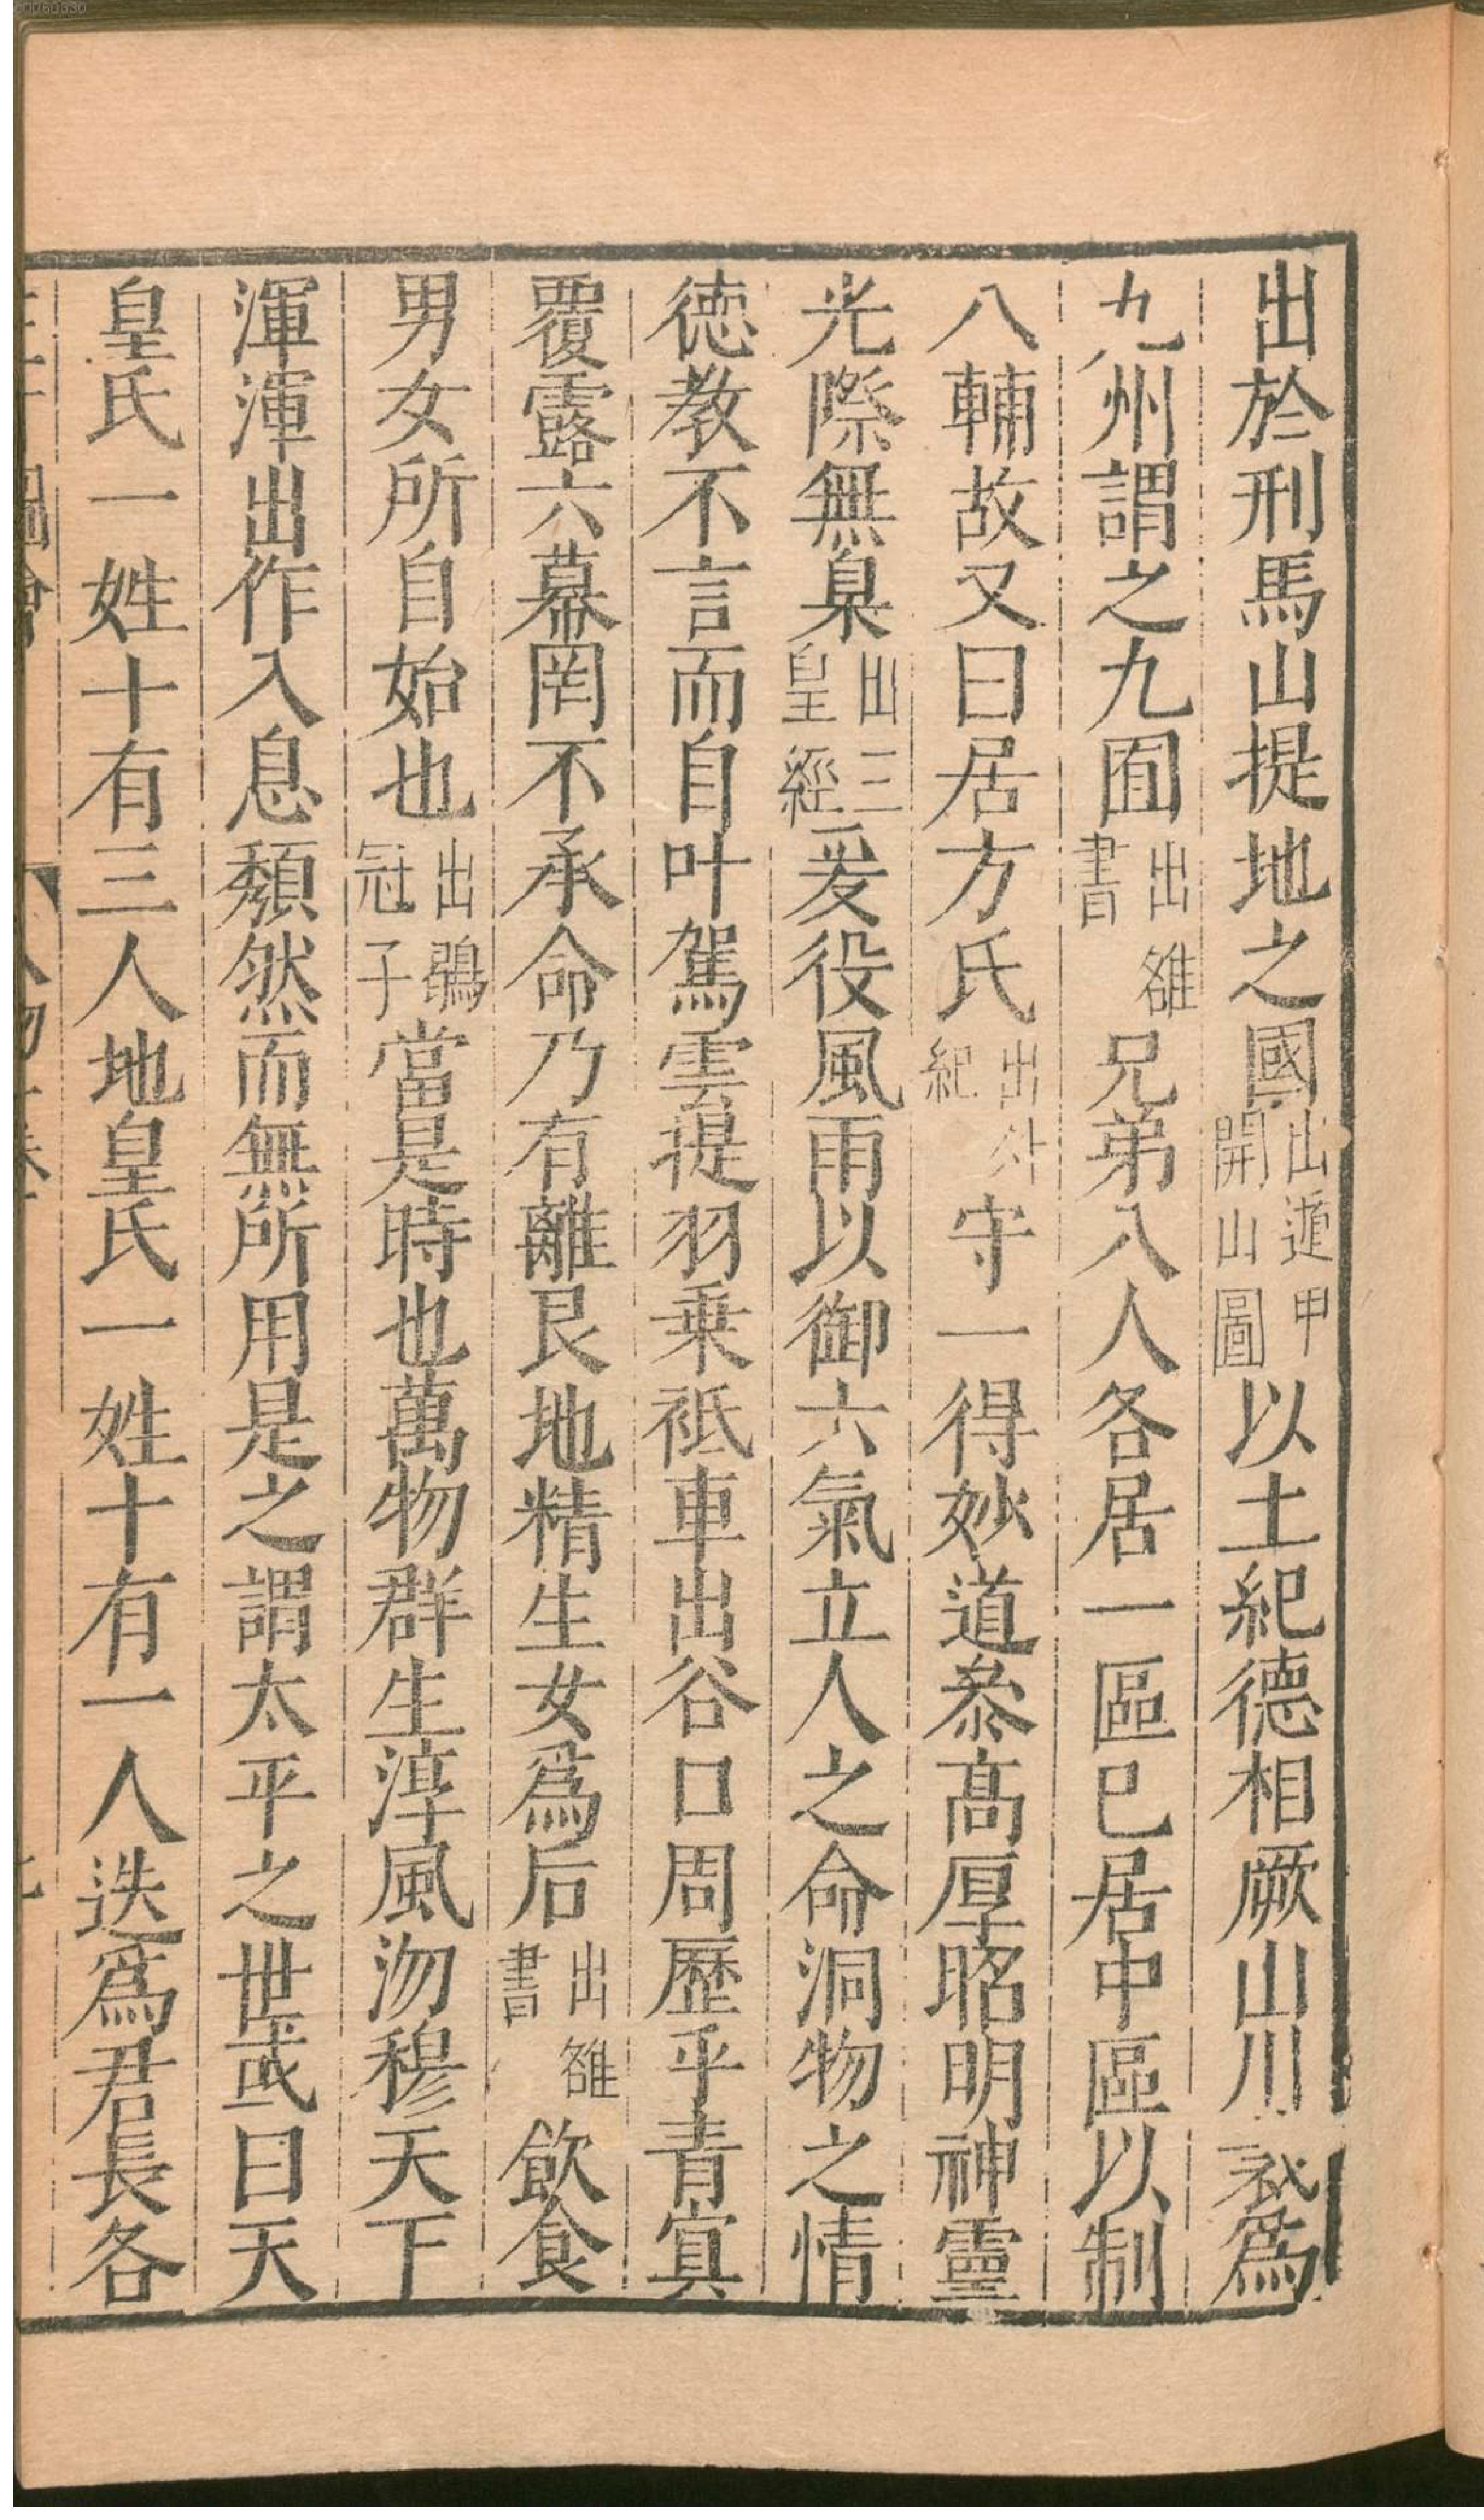 出於刑馬山提地之國出遁甲開山圖以土紀德相厥山川裁爲
九州謂之九囿出雒書兄弟八人各居一區已居中區以制
八輔故又曰居方氏出外紀守一得妙道叅高厚昭明神靈
光際無臬出三皇經爰役風雨以御六氣立人之命洞物之情
徳教不言而自叶駕雲提羽乗祇車出谷口周歷乎青寘
覆露六幕罔不承命乃有離艮地精生女爲后出雒書飲食
男女所自始也出鶡冠子當是時也萬物群生淳風沕穆天下
渾渾出作入息頽然而無所用是之謂太平之世或曰天
皇氏一姓十有三人地皇氏一姓十有一人迭爲君長各